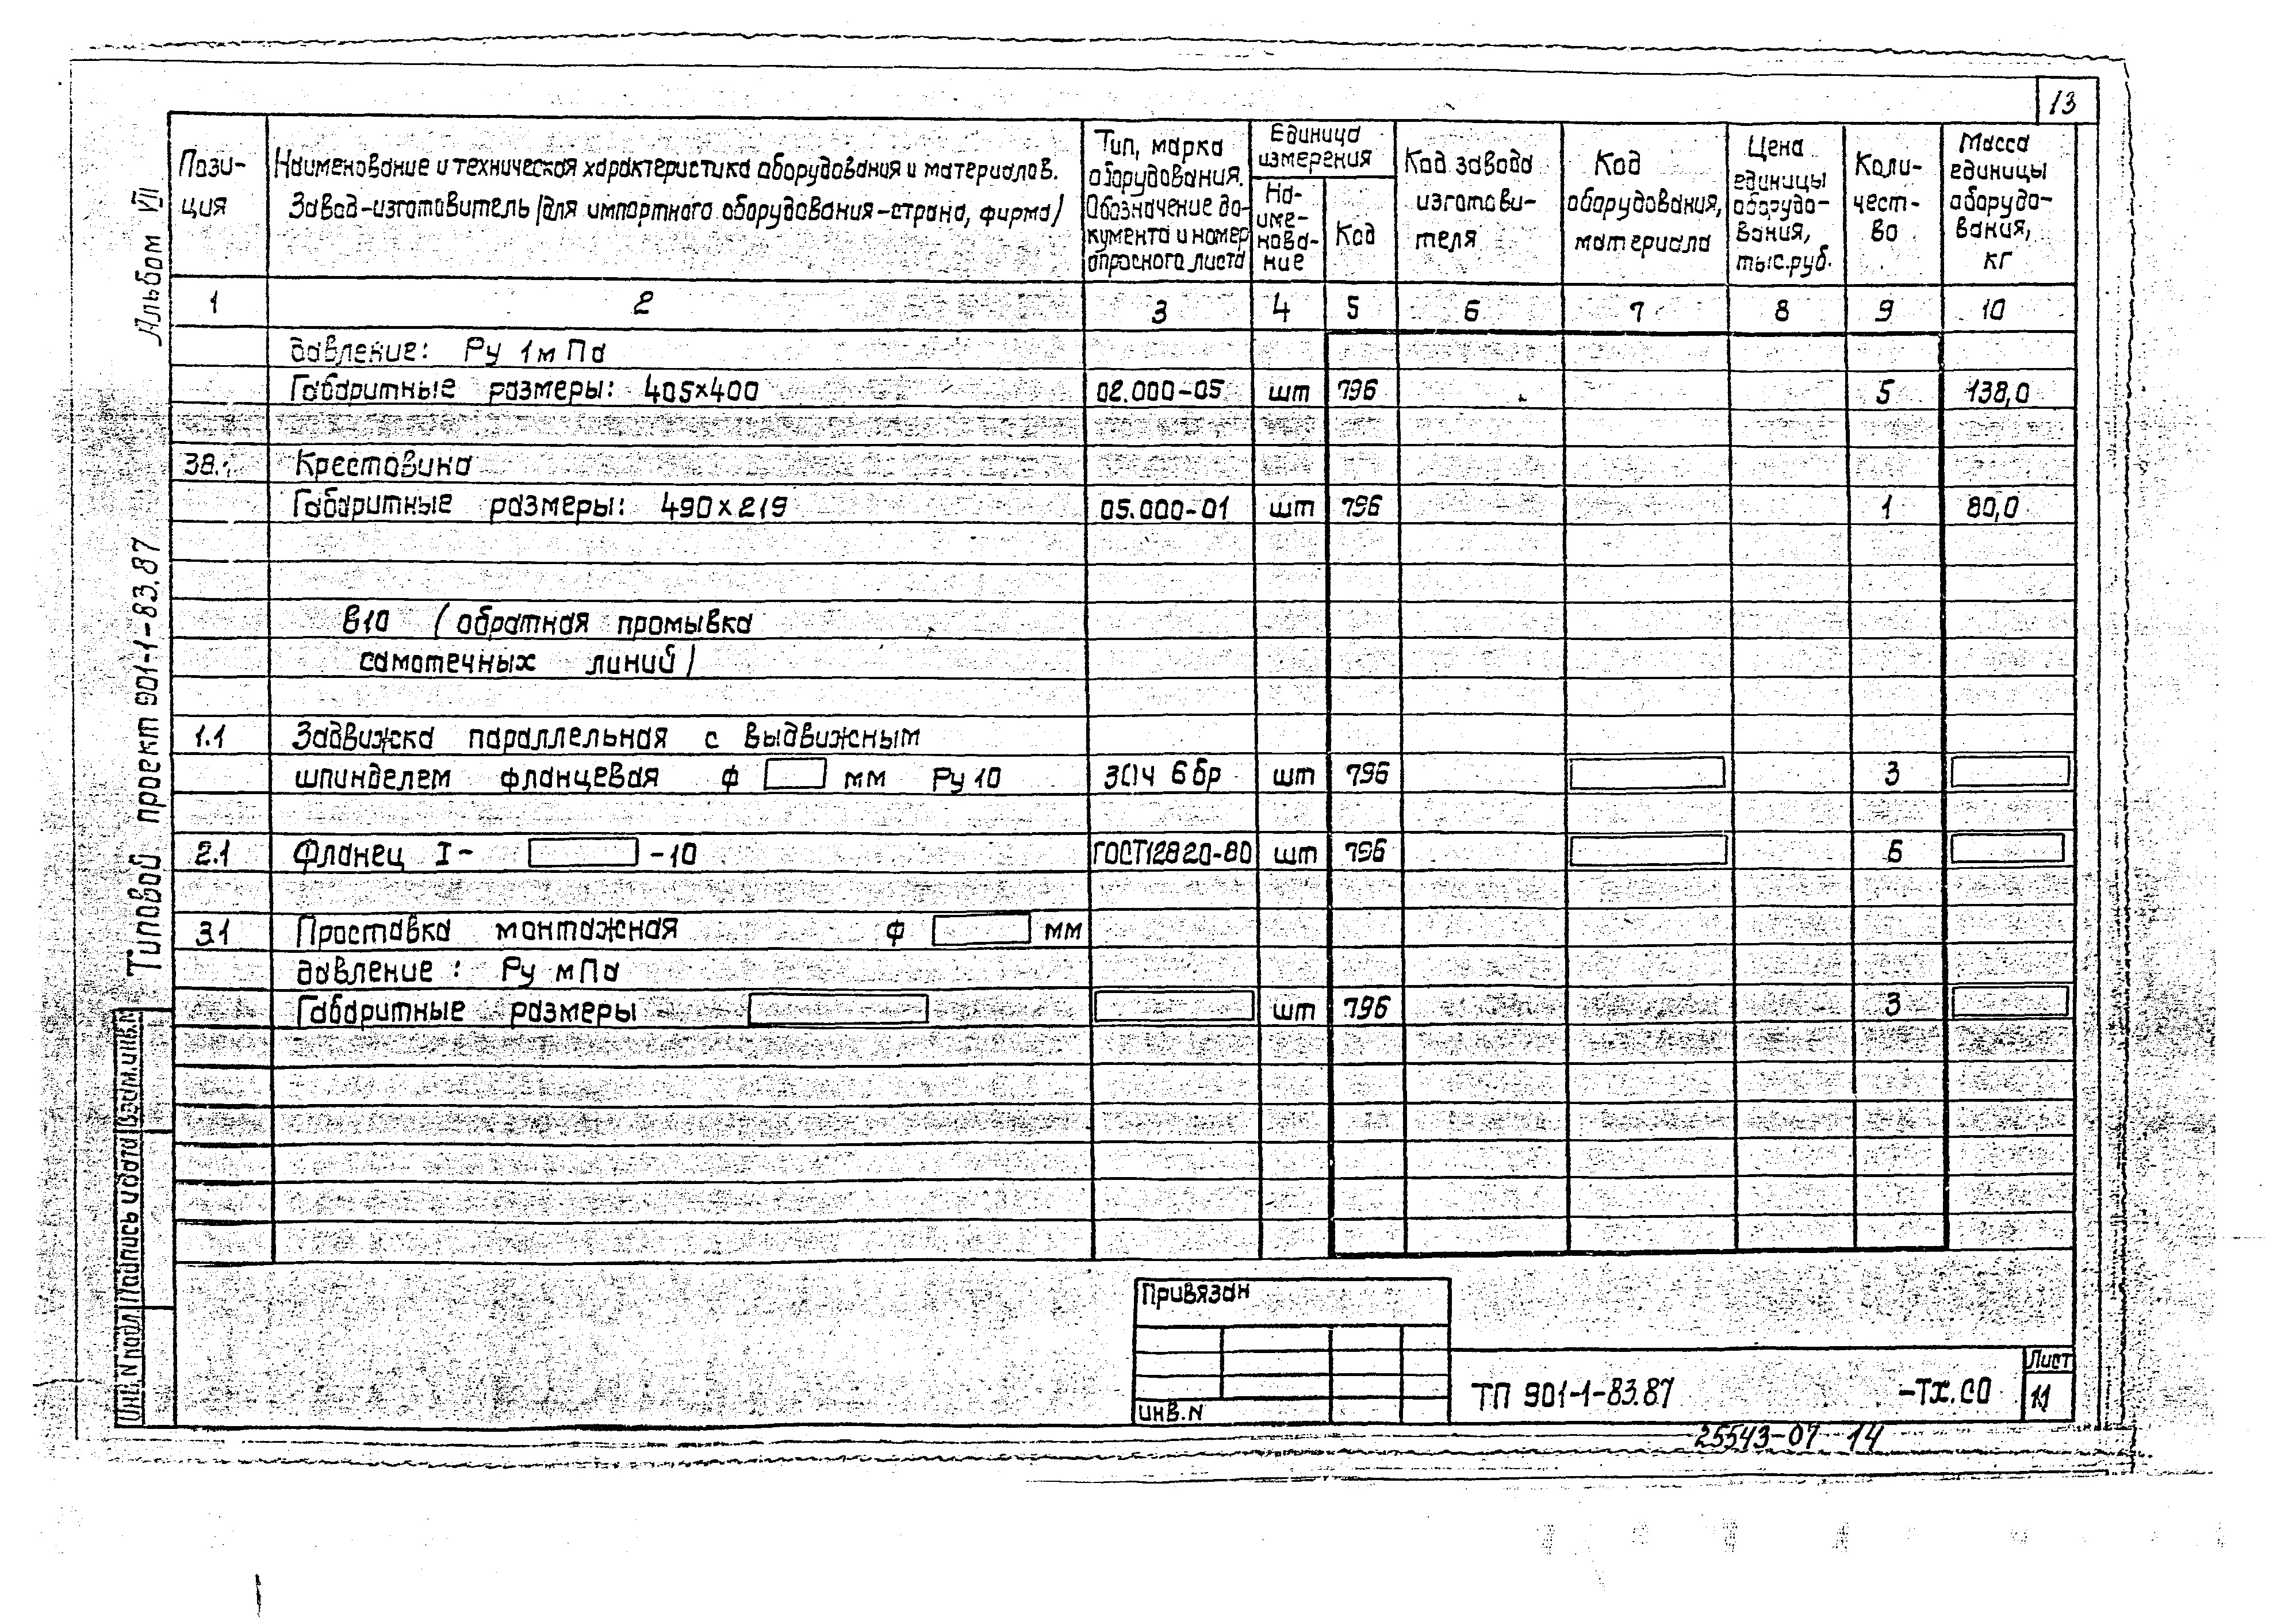 13
Пози-
ция
Наименование и техническая характеристика оборудования и материалов.
Завод-изготовитель (для импортного оборудования-страна, фирма)
Тип, марка
оборудования.
Обозначение до-
кумента и номер
опросного листа
Единица
измерения
На-
име-
нова-
ние
Код
Код завода
изготови-
теля
Код
оборудования,
материала
Цена
единицы
оборудо-
вания,
тыс.руб.
Коли-
чест-
во
Масса
единицы
оборудо-
вания,
кг
1 2 3 4 5 6 7 8 9 10
давление: Ру 1мПа
Габаритные размеры: 405×400 02.000-05 шт 796 5 138,0
38. Крестовина
Габаритные размеры: 490×219 05.000-01 шт 796 1 80,0
В10 (обратная промывка
самотечных линий)
1.1 Задвижка параллельная с выдвижным
шпинделем фланцевая ф мм Ру10 30ч 6бр шт 796 3
2.1 Фланец I- -10 ГОСТ12820-80 шт 796 6
3.1 Проставка монтажная ф мм
давление: Ру мПа
Габаритные размеры шт 796 3
Альбом VII
Типовой проект 901-1-83.87
Взам.инв.N
Подпись и дата
Инв.N подл.
Привязан
инв.N
ТП 901-1-83.87 -ТХ.СО
Лист
11
25543-07 14